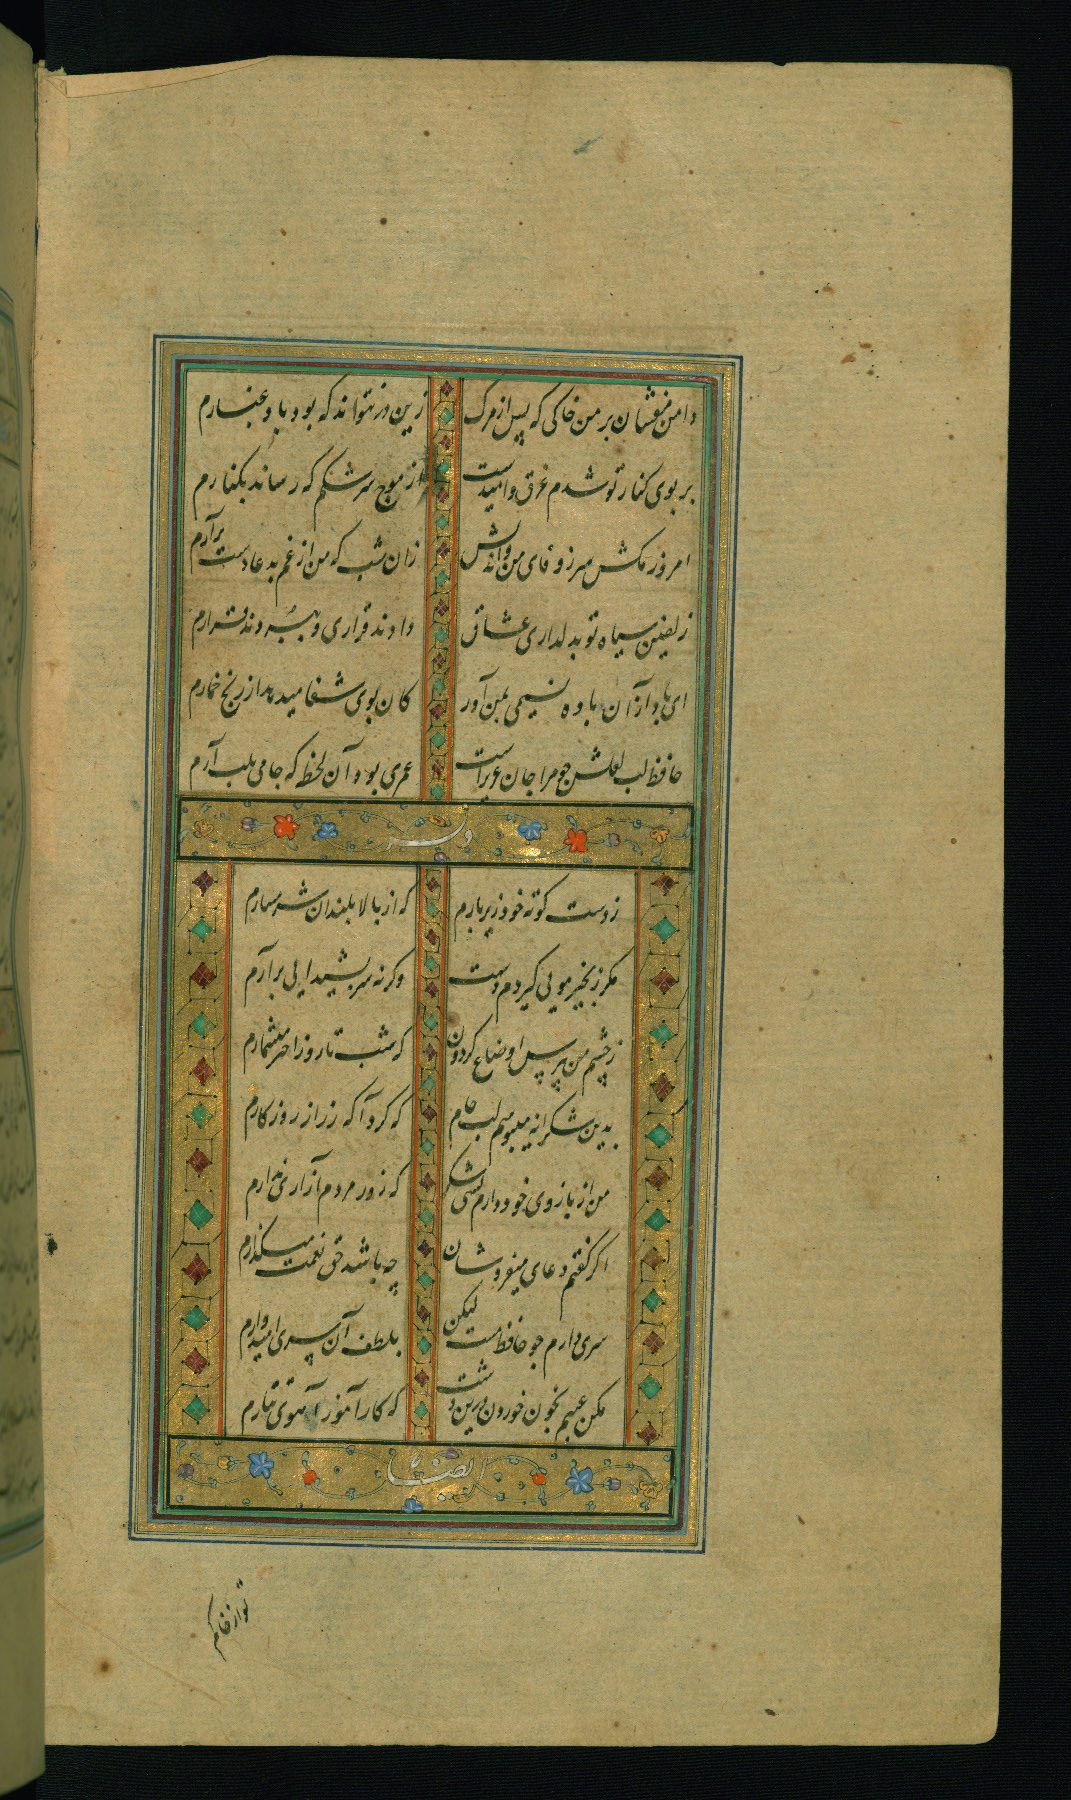 دامن مفشان بر من خاکی که پس از مرک زین در نتواند که بود باد غبارم
بر بوی کنار تو شدم غرق و امیدست از موج سرشکم که رساند بکنارم
امروز مکش سر ز وفای من و اندیش زان شب که من از غم بدعا دست برآرم
زلفین سیاه تو بدلداری عشاق دادند قراری و ببردند قرارم
ای باد از آن باده نسیمی بمن آور کان بوی شفا میدهد از رنج خمارم
حافظ لب لعلش چو مرا جان عزیزاست عمری بود آن لحظه که جامی بلب آرم
وله
ز دست کوته خود زیر بارم که از بالا بلندان شرمسارم
مکر زنجیر مویی کیردم دست وکرنه سر بشیدایی برآرم
ز چشم من بپرس اوضاع کردون که شب تا روز اختر میشمارم
بدین شکرانه میبوسم لب جام که کرد آکه ز راز روزکارم
من از بازوی خود دارم بسی شکر که زور مردم آزاری ندارم
اکر کفتم دعای میفروشان چه باشد حق نعمت میکذارم
سری دارم چو حافظ مست لیکن بلطف آن سری امیدوارم
مکن عیبم بخون خوردن درین دشت که کار آموز آهوی تتارم
ایضا
تو از خاکم